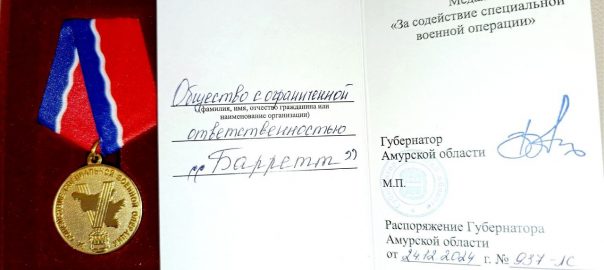 За содействие специальной военной операции
V
Общество с ограниченной
(фамилия, имя, отчество гражданина или
наименование организации)
ответственностью
„Барретт”
«За содействие специальной
военной операции»
Губернатор
Амурской области
М.П.
Распоряжение Губернатора
Амурской области
от 24.12.2024 г. № 937-лс